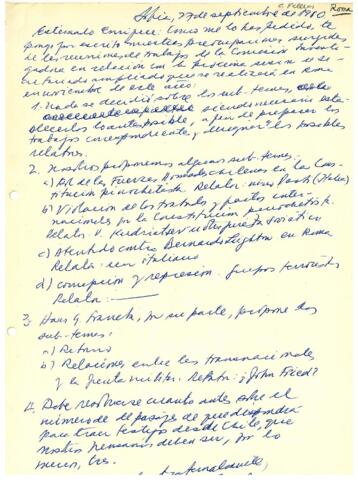 Roma
Sofia, 27 de septiembre de 1980
Estimado Enrique: Como me lo has pedido, te
pongo por escrito nuestras preocupaciones surgidas
de las reuniones de trabajo de la Comisión Investi-
gadora en relación con la próxima sesión
ampliada que se realizará en Roma
en noviembre de este año:
1. Nada se decidió sobre los sub-temas,
siendo necesario esta-
blecerlos lo antes posible, a fin de preparar los
trabajos correspondientes, y los posibles
relatores.
2. Nosotros proponemos algunos sub-temas:
a) Rol de las Fuerzas Armadas chilenas en la Cons-
titución pinochetista. Relator: (Italia)
b) Violación de los tratados y pactos inter-
nacionales por la Constitución pinochetista.
Relator: V. Kudriatsev u otro jurista soviético
c) Atentado contra Bernardo Leighton en Roma
Relator: un italiano
d) corrupción y represión. Grupos terroristas
Relator:
3. Hans G. Franck, por su parte, propone dos
sub-temas:
a) Retorno
b) Relaciones entre las transnacionales
y la Junta militar. Relator: ¿John Fried?
4. Debe resolverse cuanto antes sobre el
número de pasajes de que dispondrá
para traer testigos desde Chile, que
nosotros pensamos deben ser, por lo
menos, tres.
Fraternalmente,